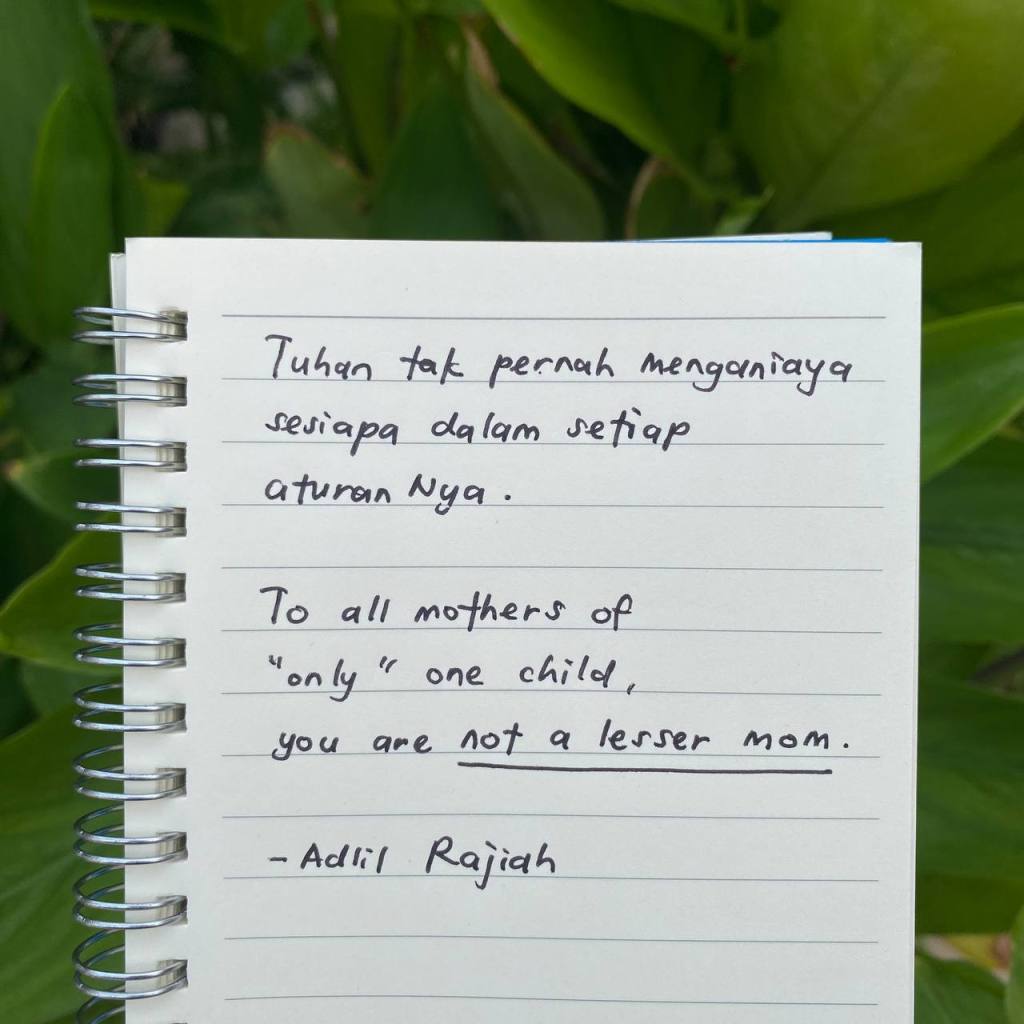 Tuhan tak pernah menganiaya
sesiapa dalam setiap
aturan Nya.
To all mothers of
"only" one child,
you are not a lesser mom.
- Adlil Rajiah